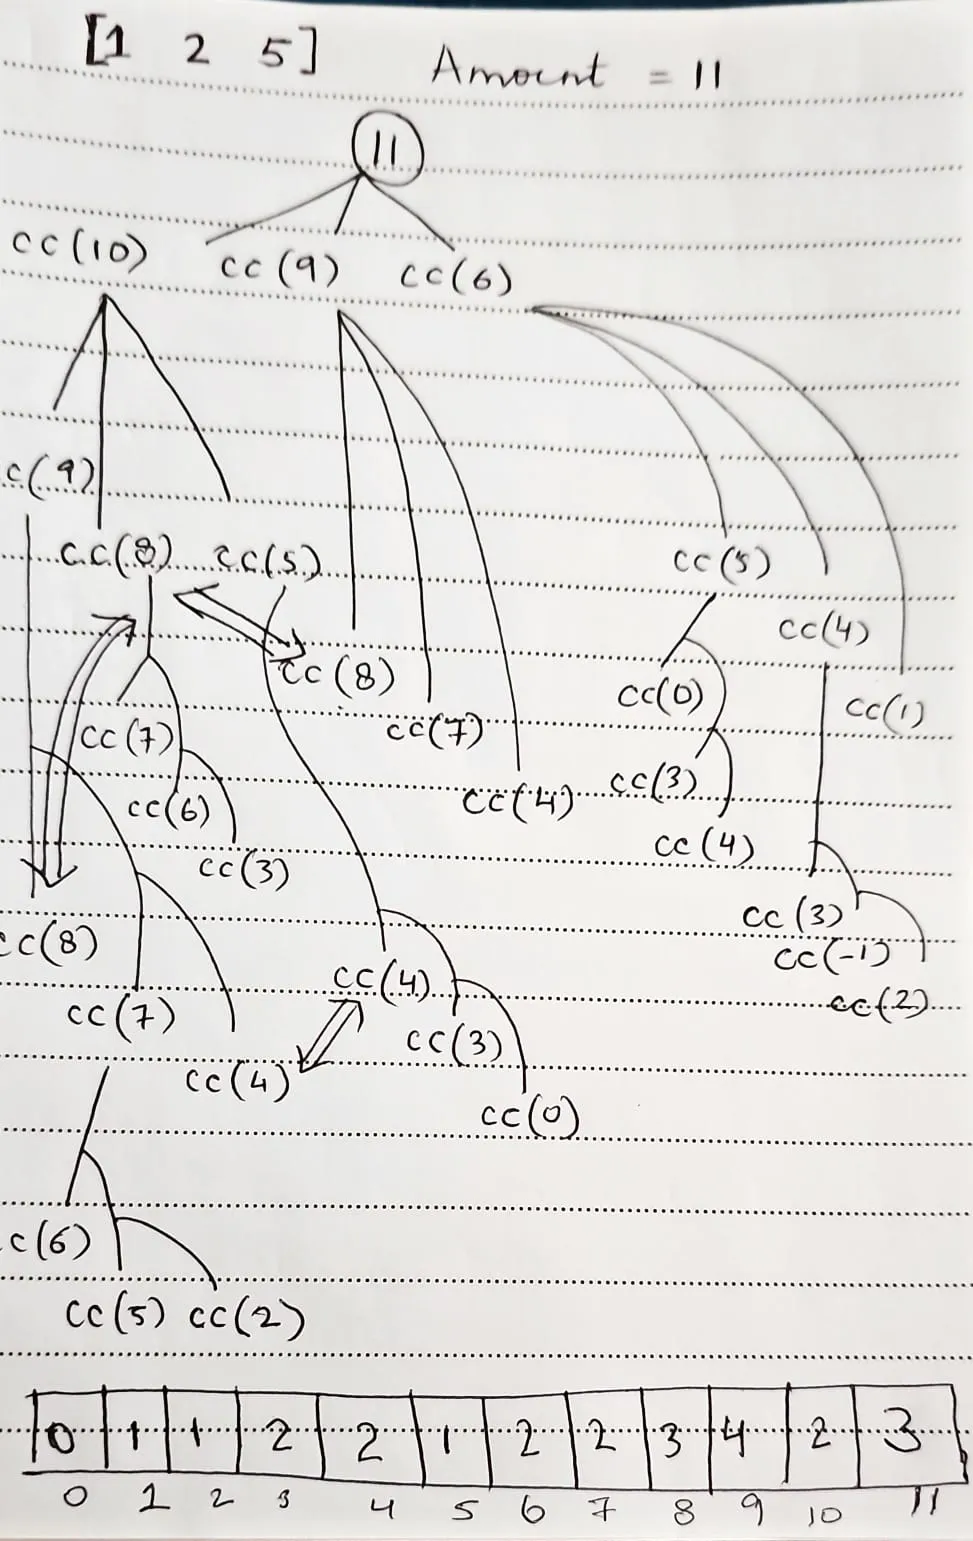 [1 2 5] Amount = 11
11
cc(10) cc(9) cc(6)
c(9)
cc(8) cc(5) cc(5)
cc(4)
cc(8) cc(0) cc(1)
cc(7) cc(7)
cc(6) cc(4) cc(3)
cc(3) cc(4)
cc(3)
cc(8) cc(-1)
cc(4) cc(2)
cc(7) cc(3)
cc(4) cc(0)
c(6)
cc(5) cc(2)
0 1 1 2 2 1 2 2 3 4 2 3
0 1 2 3 4 5 6 7 8 9 10 11